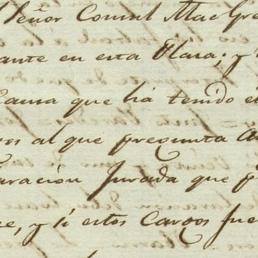 Señor Consul MacGre
ante en esta Plaza; y
Causa que há tenido é
os al que pregunta
aración Jurada que p
ce, y si estos cargos fue